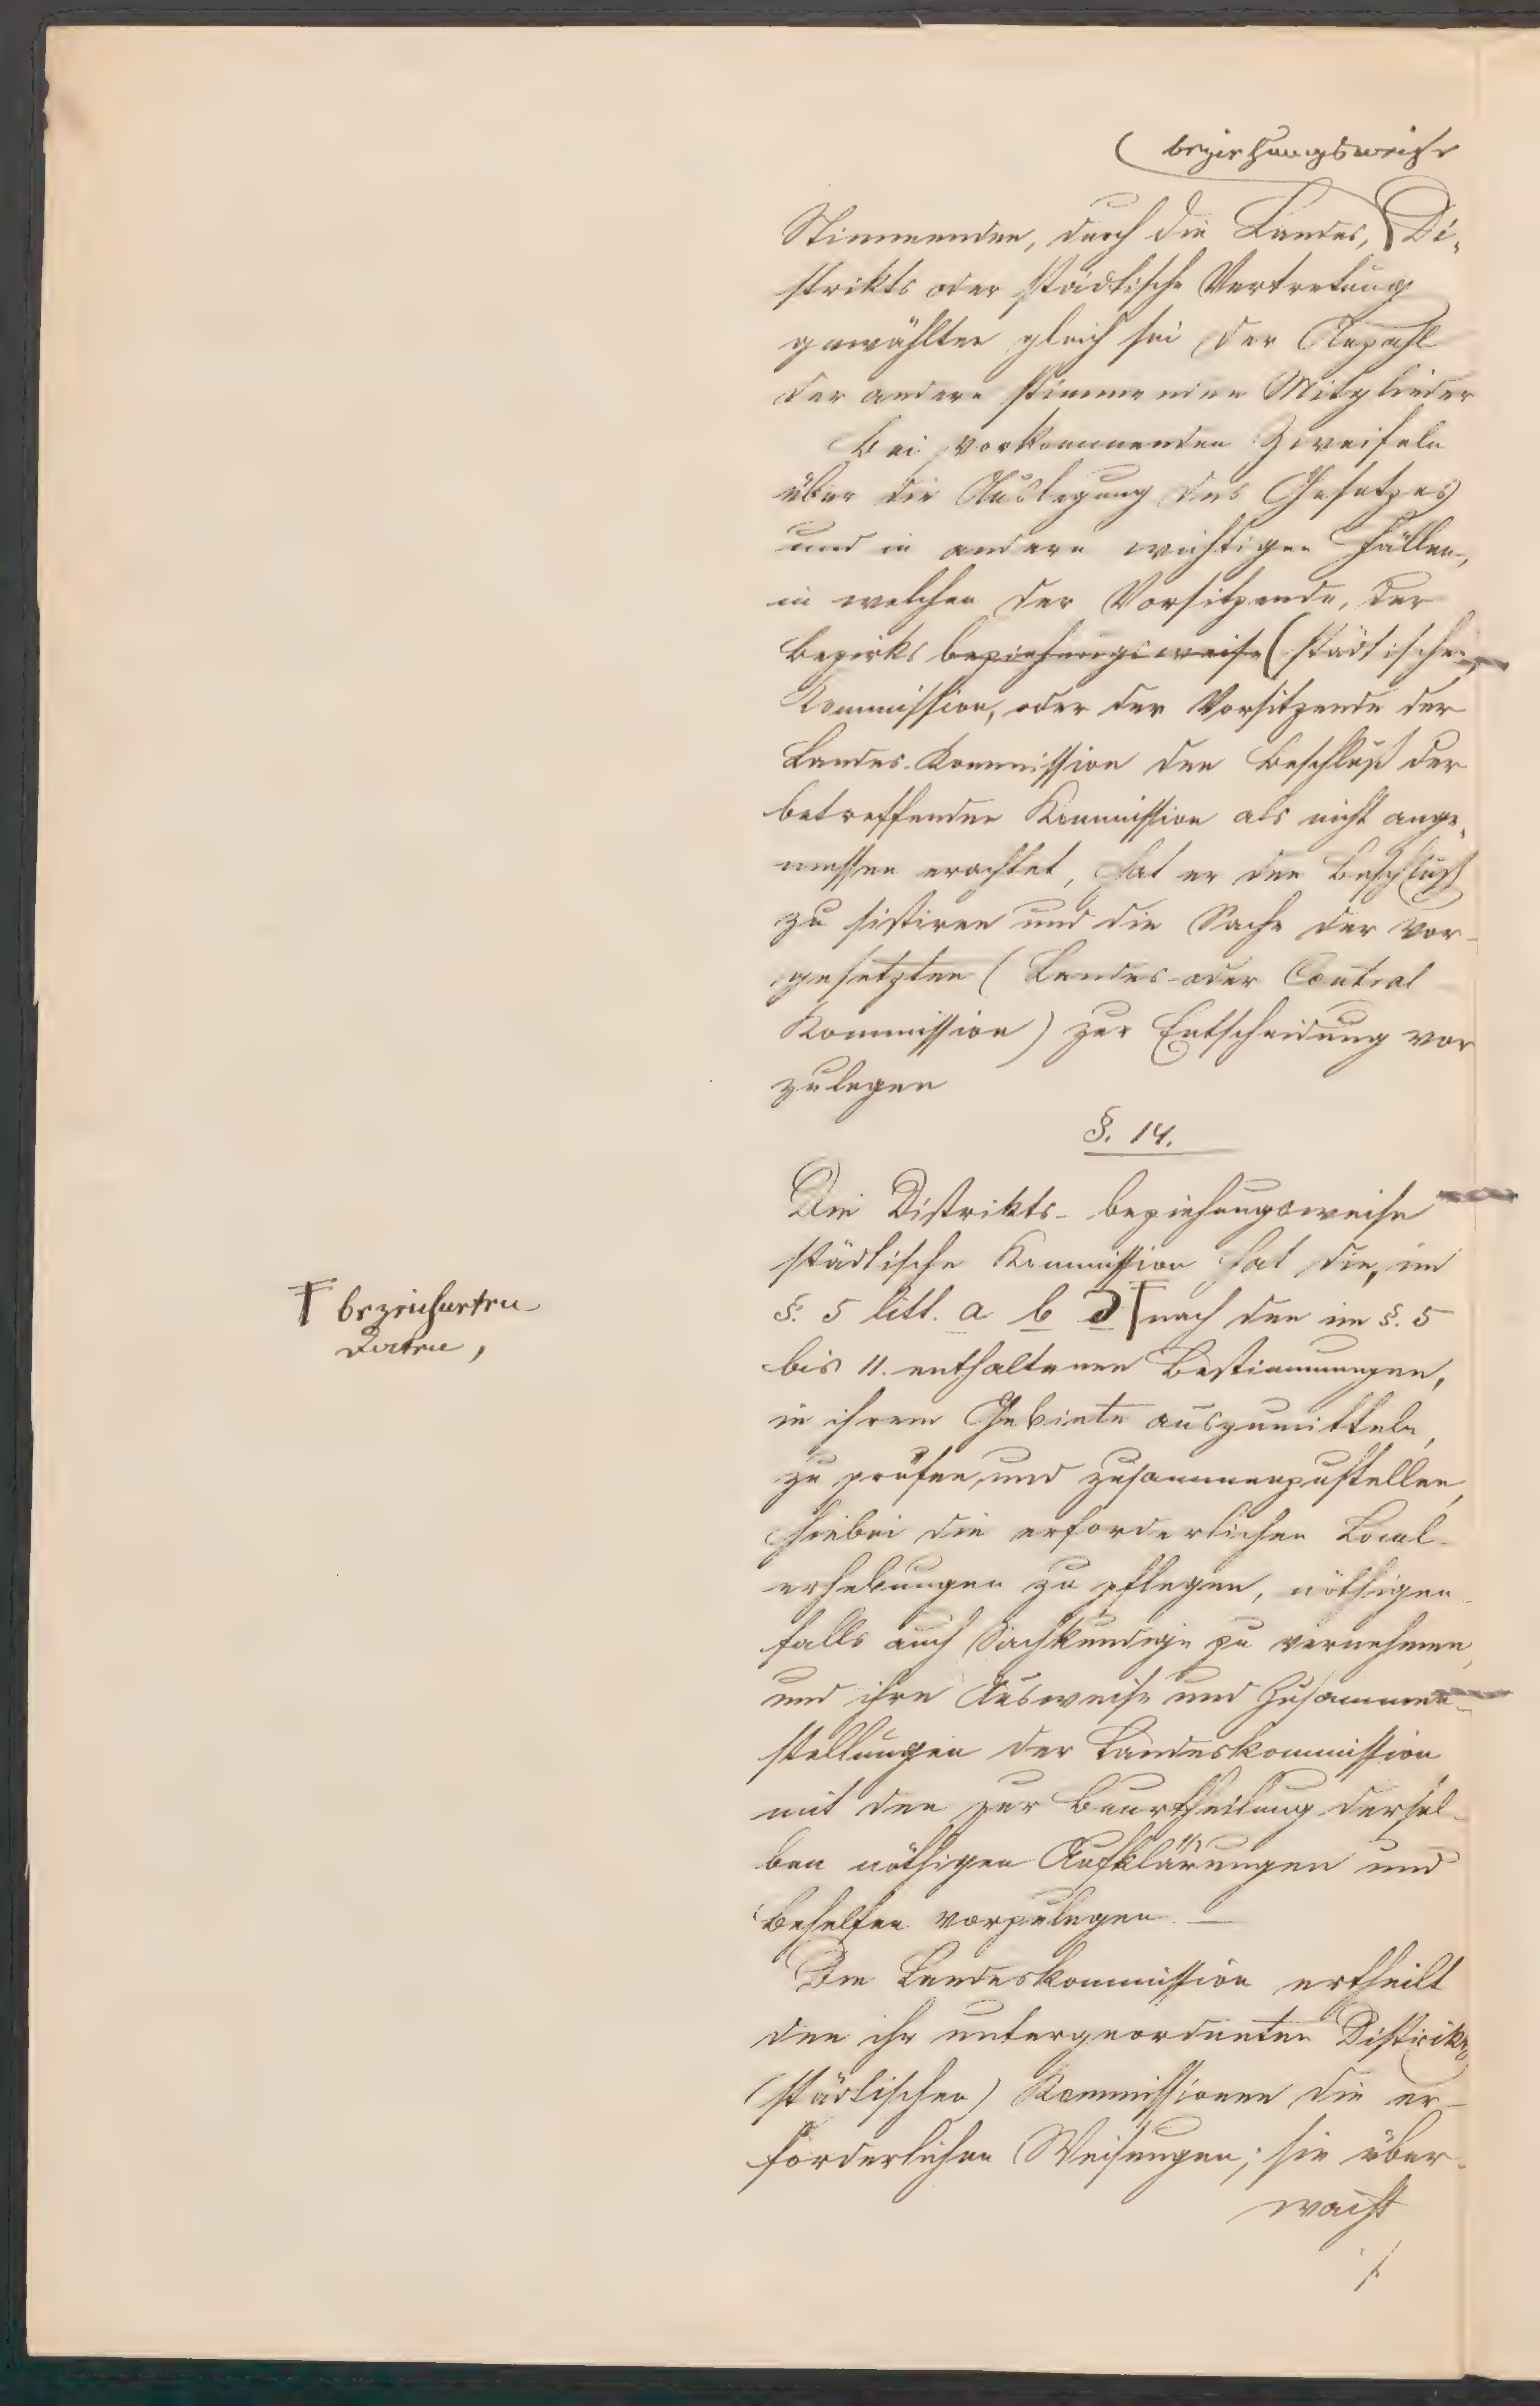 (beziehungsweise
Stimmenden, durch die Landes, Di-
strikts oder städtische Vertretung
gewählten gleich sei der Anzahl
der andern stimmenden Mitglieder
Bei vorkommenden Zweifeln
über die Auslegung des Gesetzes
und in andern wichtigen Fällen,
in welchen der Vorsitzende, der
Bezirks beziehungsweise (städtischen
Kommission, oder der Vorsitzende der
Landes-Kommission den Beschluß der
betreffenden Kommission als nicht ange-
messen erachtet, hat er den Beschluß
zu sistiren und die Sache der vor-
gesetzten (Landes-oder Central
Kommission) zur Entscheidung vor
zulegen
§. 14.
Die Distrikts- beziehungsweise
städtische Kommission hat die, im
§. 5 litt. a b d † nach den im §. 5
† bezeichneten
Daten,
bis 11. enthaltenen Bestimmungen,
in ihrem Gebiete auszumitteln,
zu prüfen und zusammenzustellen,
hiebei die erforderlichen Local-
erhebungen zu pflegen, nöthigen-
falls auch Sachkundige zu vernehmen,
und ihre Ausweise und Zusammen-
stellungen der Landeskommission
mit den zur Beurtheilung dersel-
ben nöthigen Aufklärungen und
Behelfen vorzulegen. —
Die Landeskommission ertheilt
den ihr untergeordneten Distrikts
(städtischen) Kommissionen die er-
forderlichen Weisungen; sie über-
wacht